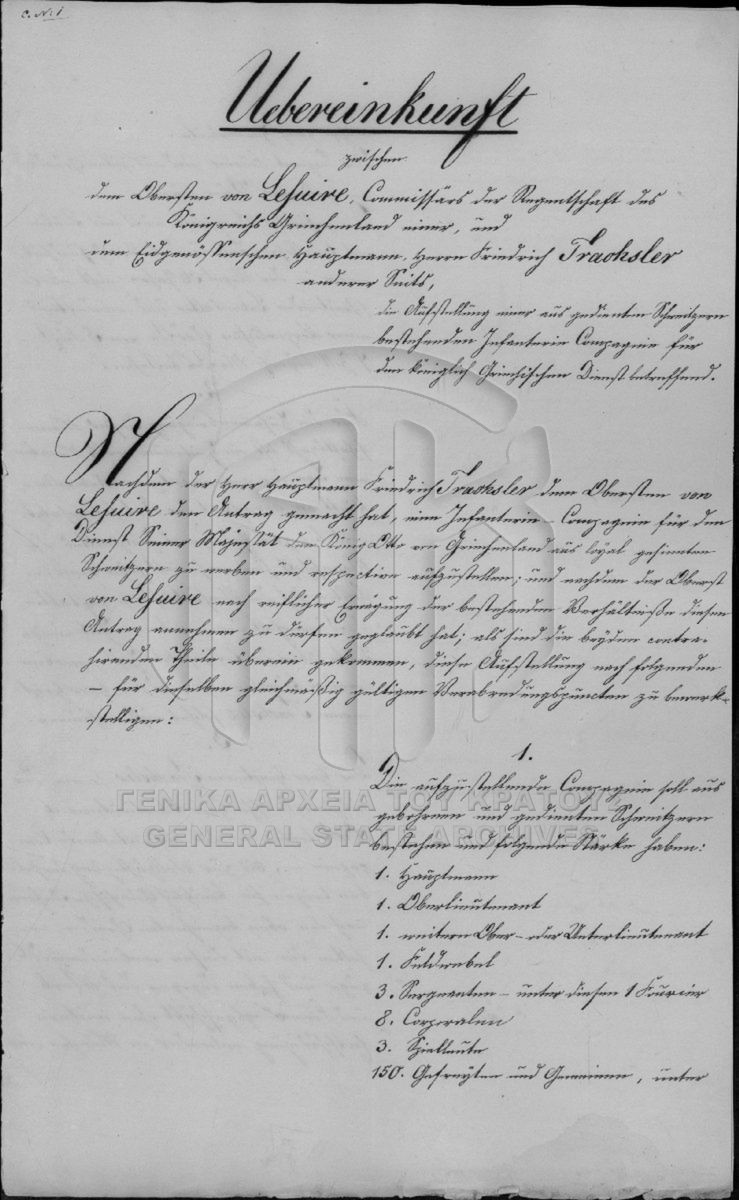 C. No 1
Uebereinkunft
zwischen
dem Obersten von Lesuire, Commissärs der Regentschaft des
Königreichs Griechenland einer, und
dem Eidgenössenschen Hauptmann, Herrn Friedrich Trachsler
anderer Seits,
die Aufstellung einer aus gedienten Schweitzern
bestehenden Infanterie Compagnie für
den königlich Griechischen Dienst betreffend.
Nachdem der Herr Hauptmann Friedrich Trachsler dem Obersten von
Lesuire den Antrag gemacht hat, eine Infanterie-Compagnie für den
Dienst Seiner Majestät des König Otto von Griechenland aus loyal gesinnten
Schweitzern zu werben und respective aufzustellen; und nachdem der Oberst
von Lesuire nach reiflicher Erwägung der bestehenden Verhältniße diesen
Antrag annehmen zu dürfen geglaubt hat; als sind die beyden contra-
hirenden Theile überein gekommen, diese Aufstellung nach folgenden
– für dieselben gleichmäßig gültigen Verabredungspuncten zu bewerk-
stelligen:
1.
Die aufzustellende Compagnie soll aus
gebohrnen und gedienten Schweitzern
bestehen und folgende Stärke haben:
1. Hauptmann
1. Oberlieutenant
1. weitern Ober- oder Unterlieutenant
1. Feldwebel
3. Sergeanten – unter diesen 1 Fourier
8. Corporalen
3. Spielleute
150. Gefreyten und Gemeinen, unter
ΓΕΝΙΚΑ ΑΡΧΕΙΑ ΤΟΥ ΚΡΑΤΟΥΣ
GENERAL STATE ARCHIVES